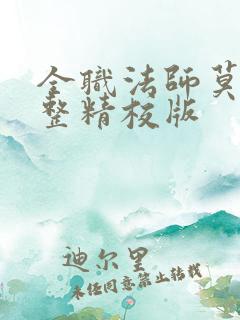 全职法师莫
整精校版
迪尔里
未经同意禁止转载